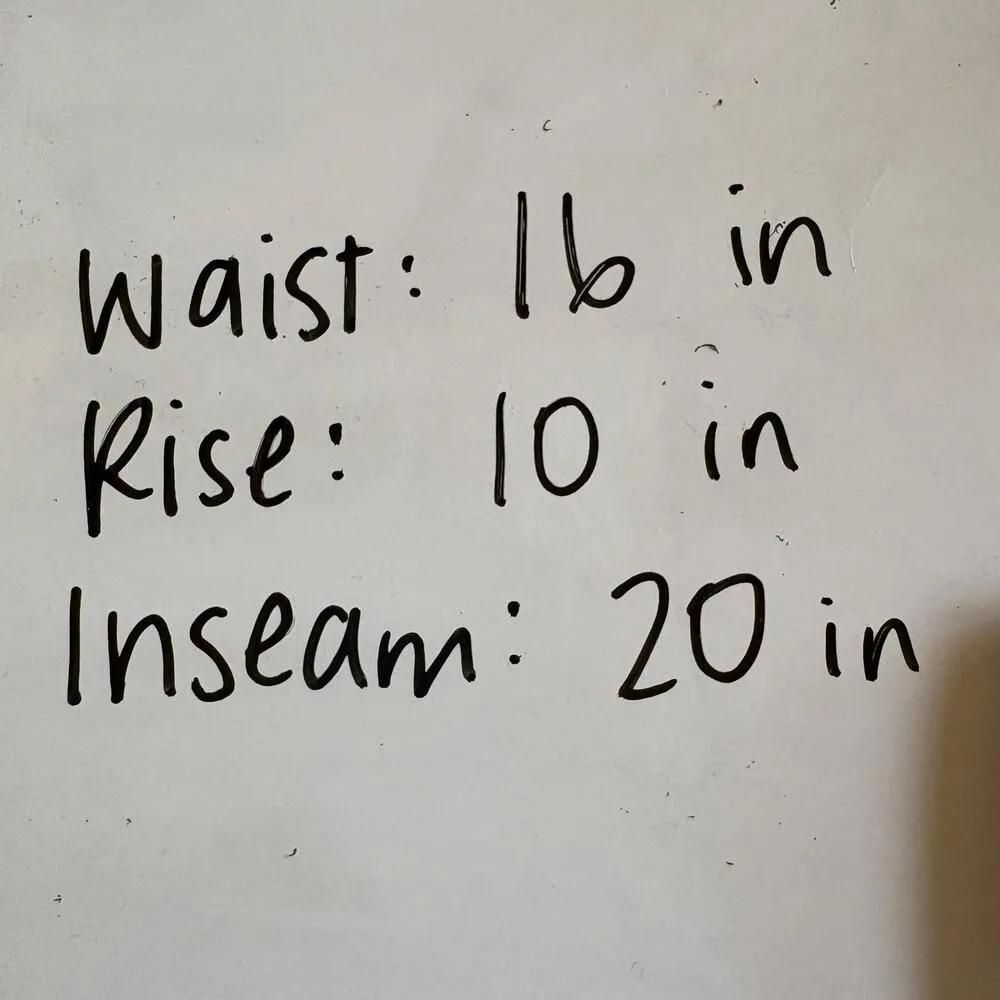 Waist: 16 in
Rise: 10 in
Inseam: 20 in